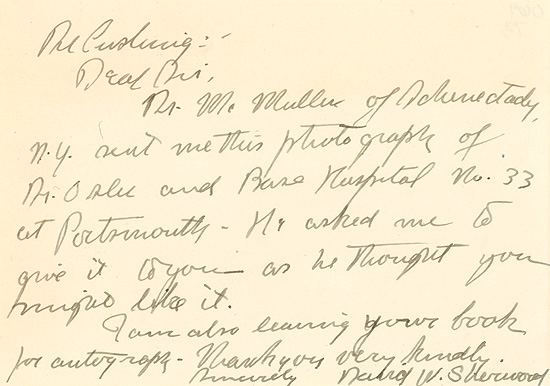 Dr Cushing:-
Dear Sir,
Dr. Mc Mullen of Schenectady,
N.Y. sent me this photograph of
Dr. Osler and Base Hospital No. 33
at Portsmouth - He asked me to
give it to you as he thought you
might like it.
I am also leaving your book
for autograph - Thank you very kindly.
Sincerely David W. Sherwood